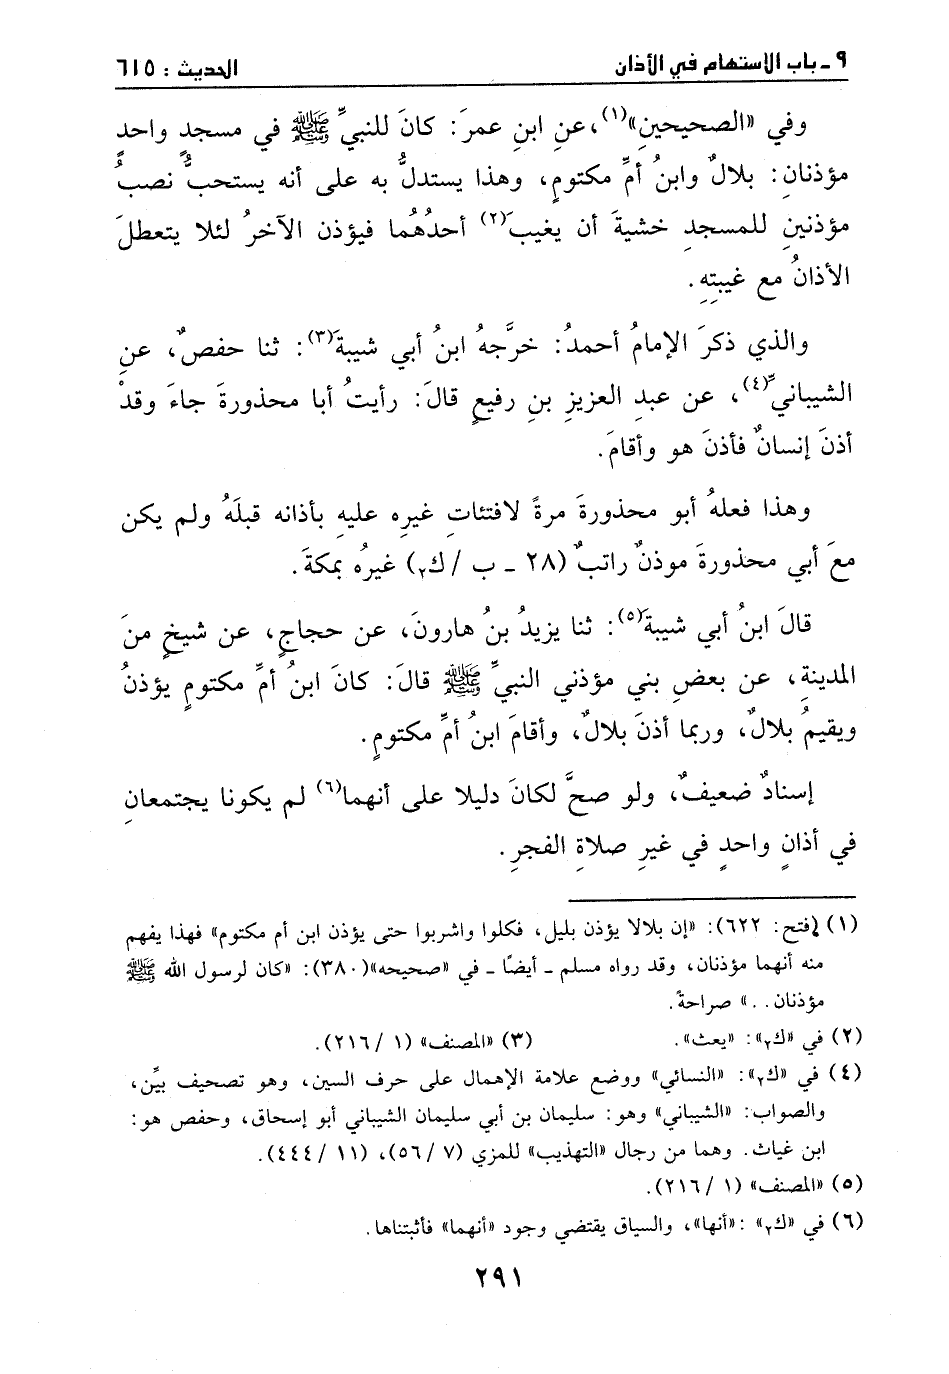 ٩ - باب الاستهام في الأذان الحديث : ٦١٥
وفي «الصحيحينِ»(١)، عنِ ابنِ عمرَ: كانَ للنبيِّ ﷺ في مسجدٍ واحدٍ
مؤذنانِ: بلالٌ وابنُ أمِّ مكتومٍ، وهذا يستدلُّ به على أنه يستحبُّ نصبُ
مؤذنينِ للمسجدِ خشيةَ أن يغيبَ(٢) أحدُهُما فيؤذن الآخرُ لئلا يتعطلَ
الأذانُ مع غيبتِهِ.
والذي ذكرَ الإمامُ أحمدُ: خرَّجهُ ابنُ أبي شيبةَ(٣): ثنا حفصٌ، عنِ
الشيبانيِّ(٤)، عن عبدِ العزيزِ بنِ رفيعٍ قالَ: رأيتُ أبا محذورةَ جاءَ وقدْ
أذنَ إنسانٌ فأذنَ هو وأقامَ.
وهذا فعلهُ أبو محذورةَ مرةً لافتئاتِ غيرِه عليهِ بأذانه قبلَهُ ولم يكن
معَ أبي محذورةَ موذنٌ راتبٌ (٢٨ - ب / ك٢) غيرُه بمكةَ.
قالَ ابنُ أبي شيبةَ(٥): ثنا يزيدُ بنُ هارونَ، عن حجاجٍ، عن شيخٍ منَ
المدينةِ، عن بعضِ بني مؤذني النبيِّ ﷺ قالَ: كانَ ابنُ أمِّ مكتومٍ يؤذنُ
ويقيمُ بلالٌ، وربما أذنَ بلالٌ، وأقامَ ابنُ أمِّ مكتومٍ.
إسنادٌ ضعيفٌ، ولو صحَّ لكانَ دليلا على أنهما(٦) لم يكونا يجتمعانِ
في أذانٍ واحدٍ في غيرِ صلاةِ الفجرِ.
(١) (فتح: ٦٢٢): «إن بلالا يؤذن بليل، فكلوا واشربوا حتى يؤذن ابن أم مكتوم» فهذا يفهم
منه أنهما مؤذنان، وقد رواه مسلم - أيضًا - في «صحيحه»(٣٨٠): «كان لرسول الله ﷺ
مؤذنان..» صراحةً.
(٢) في «ك٢»: «يعث». (٣) «المصنف» (١ /٢١٦).
(٤) في «ك٢»: «النسائي» ووضع علامة الإهمال على حرف السين، وهو تصحيف بيِّن،
والصواب: «الشيباني» وهو: سليمان بن أبي سليمان الشيباني أبو إسحاق، وحفص هو:
ابن غياث. وهما من رجال «التهذيب» للمزي (٧ /٥٦)، (١١ /٤٤٤).
(٥) «المصنف» (١ /٢١٦).
(٦) في «ك٢» :«أنها»، والسياق يقتضي وجود «أنهما» فأثبتناها.
٢٩١